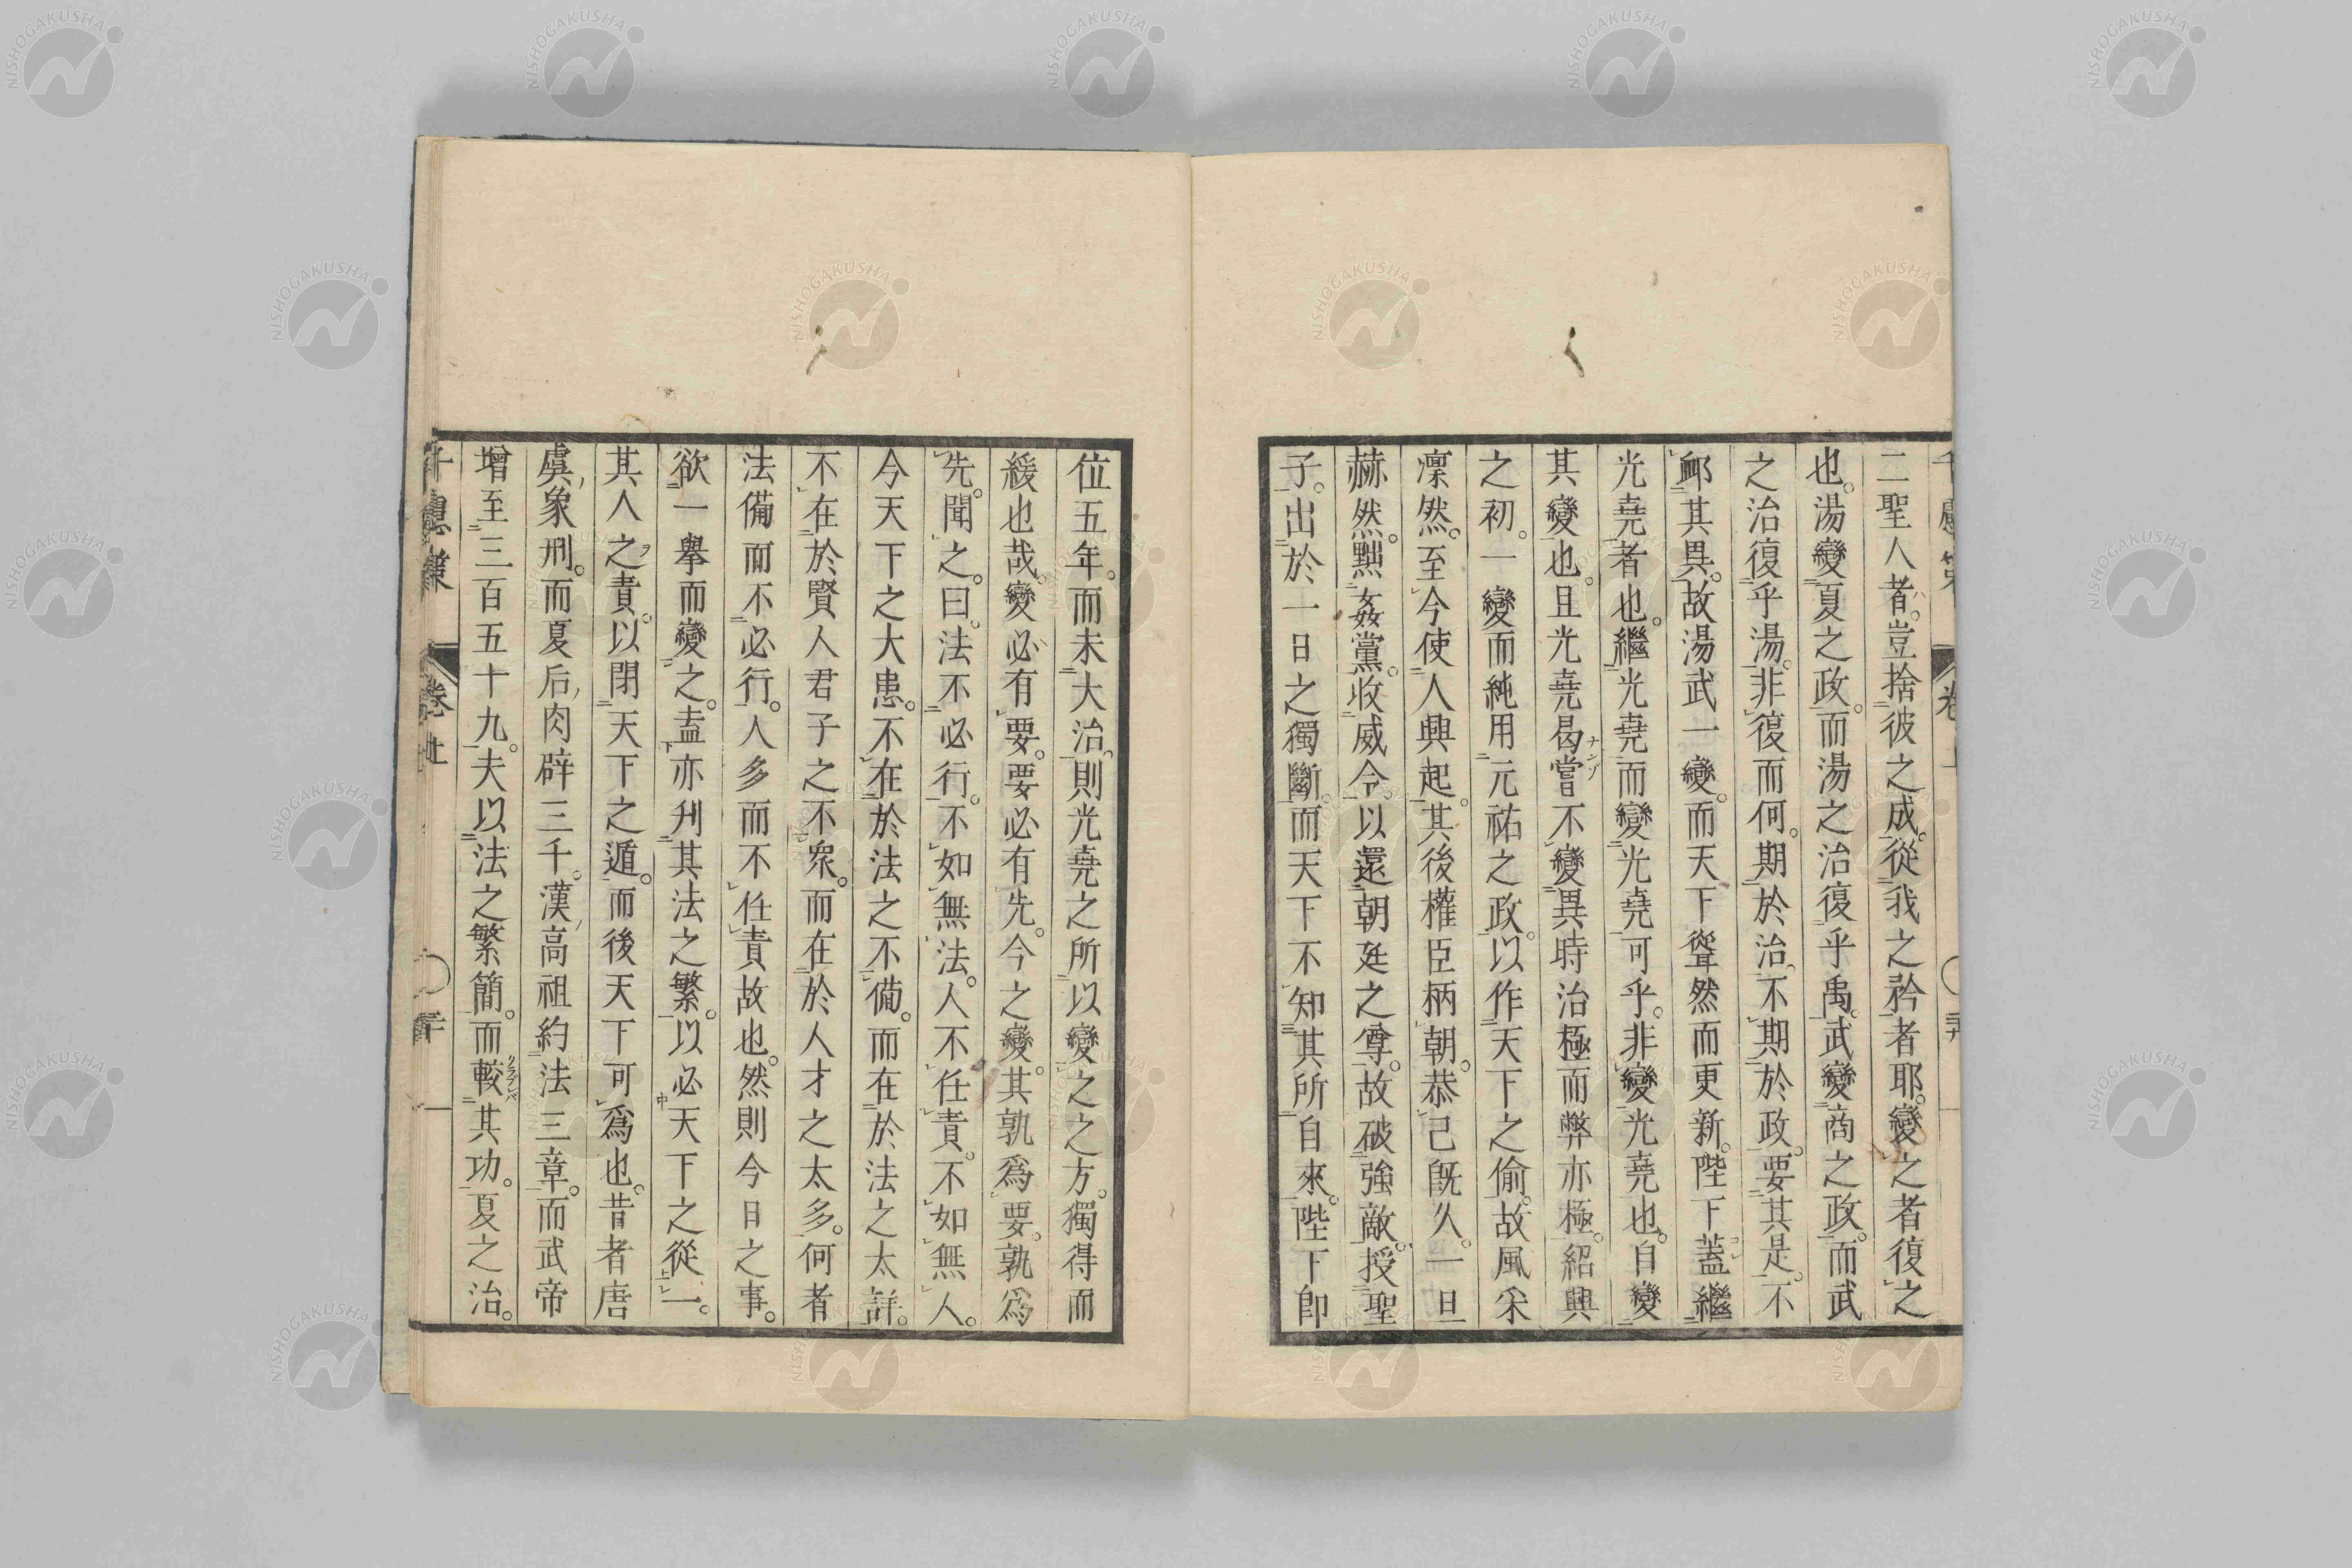 二聖人者。豈捨彼之成。從我之矜者耶。變之者復之
也。湯變夏之政。而湯之治復乎禹。武變商之政。而武
之治復乎湯。非復而何。期於治。不期於政。要其是。不
卹其異。故湯武一變。而天下聳然而更新。陛下蓋繼
光堯者也。繼光堯而變光堯可乎。非變光堯也。自變
其變也。且光堯曷嘗不變異時治極而弊亦極。紹興
之初。一變而純用元祐之政。以作天下之偷。故風采
凜然。至今使人興起。其後權臣柄朝。恭己既久。一旦
赫然。黜姦黨。收威令。以還朝廷之尊。故破強敵。授聖
子。出於一日之獨斷。而天下不知其所自來。陛下卽
位五年。而未大治。則光堯之所以變之之方。獨得而
緩也哉。變必有要。要必有先。今之變。其孰爲要。孰爲
先。聞之。曰。法不必行。不如無法。人不任責。不如無人。
今天下之大患。不在於法之不備。而在於法之太詳。
不在於賢人君子之不衆。而在於人才之太多。何者
法備而不必行。人多而不任責故也。然則今日之事。
欲一舉而變之。盍亦刋其法之繁。以必天下之從一。
其人之責。以閉天下之遁。而後天下可爲也。昔者唐
虞象刑。而夏后肉辟三千。漢高祖約法三章。而武帝
增至三百五十九。夫以法之繁簡。而較其功。夏之治。
千慮策 卷上
NISHOGAKUSHA